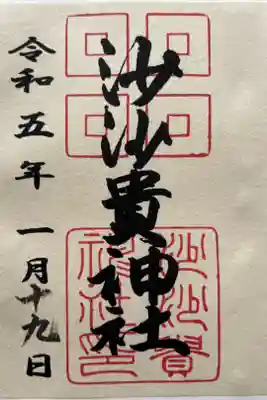 沙沙貴神社
令和五年 一月十九日
沙沙貴
神社印